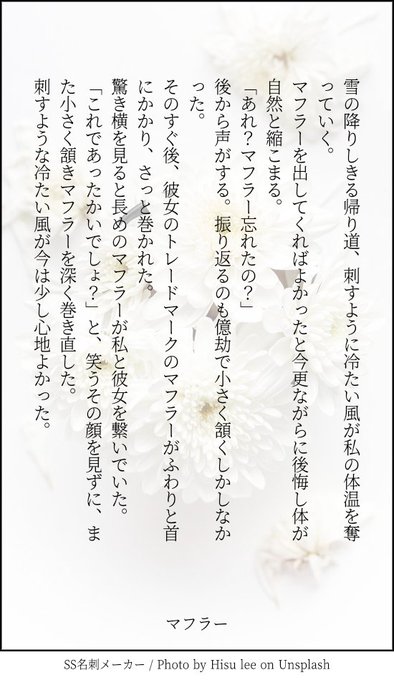 雪の降りしきる帰り道、刺すように冷たい風が私の体温を奪
っていく。
マフラーを出してくればよかったと今更ながらに後悔し体が
自然と縮こまる。
「あれ？マフラー忘れたの？」
後から声がする。振り返るのも億劫で小さく頷くしかしなか
った。
そのすぐ後、彼女のトレードマークのマフラーがふわりと首
にかかり、さっと巻かれた。
驚き横を見ると長めのマフラーが私と彼女を繋いでいた。
「これであったかいでしょ？」と、笑うその顔を見ずに、ま
た小さく頷きマフラーを深く巻き直した。
刺すような冷たい風が今は少し心地よかった。
マフラー
SS名刺メーカー / Photo by Hisu lee on Unsplash